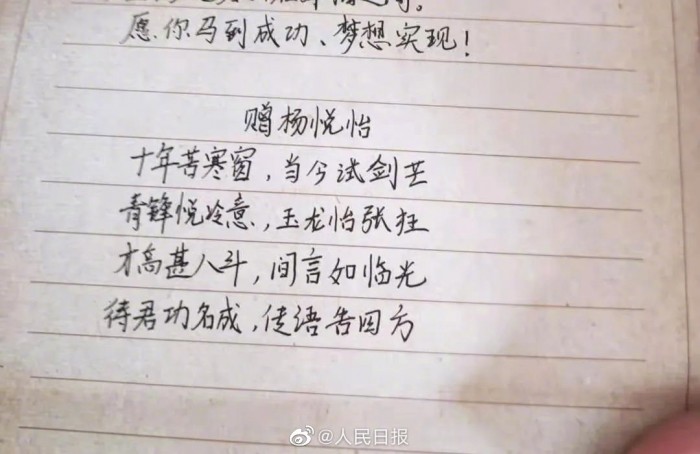 愿你马到成功、梦想实现!
赠杨悦怡
十年苦寒窗，当今试剑芒
青锋悦冷意，玉龙怡张狂
才高甚八斗，间言如临光
待君功名成，传语告四方
@人民日报